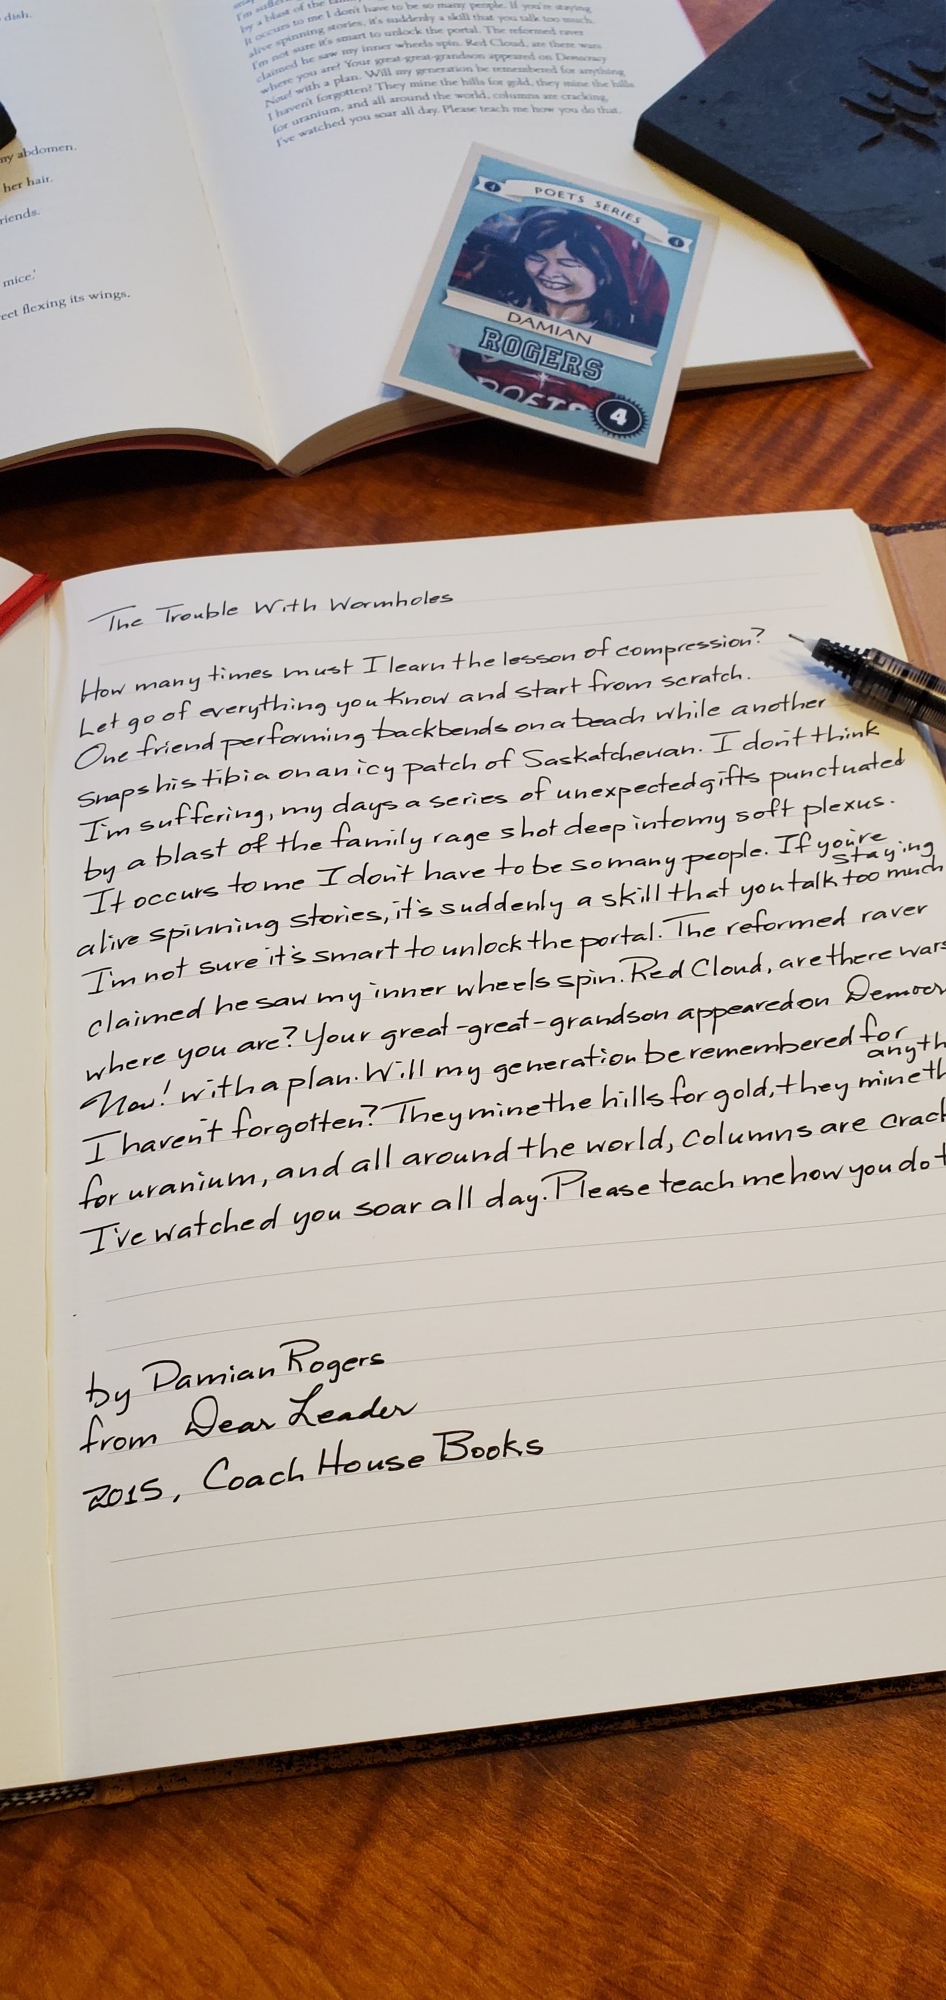 dish.
my abdomen.
her hair.
riends.
mice.'
eet flexing its wings.
I'm
by a blast of the
It occurs to me I don't have to be so many people. If you're staying
alive spinning stories, it's suddenly a skill that you talk too much.
I'm not sure it's smart to unlock the portal. The reformed raver
claimed he saw my inner wheels spin. Red Cloud, are there wars
where you are? Your great-great-grandson appeared on Democracy
Now! with a plan. Will my generation be remembered for anything
I haven't forgotten? They mine the hills for gold, they mine the hills
for uranium, and all around the world, columns are cracking.
I've watched you soar all day. Please teach me how you do that.
4 POETS SERIES 4
DAMIAN
ROGERS
POETS
4
The Trouble With Wormholes
How many times must I learn the lesson of compression?
Let go of everything you know and start from scratch.
One friend performing backbends on a beach while another
snaps his tibia on an icy patch of Saskatchewan. I don't think
I'm suffering, my days a series of unexpected gifts punctuated
by a blast of the family rage shot deep into my soft plexus.
It occurs to me I don't have to be so many people. If you're
staying
alive spinning stories, it's suddenly a skill that you talk too much
I'm not sure it's smart to unlock the portal. The reformed raver
claimed he saw my inner wheels spin. Red Cloud, are there wars
where you are? Your great-great-grandson appeared on Democr
Now! with a plan. Will my generation be remembered for
anyth
I haven't forgotten? They mine the hills for gold, they mine th
for uranium, and all around the world, columns are crack
I've watched you soar all day. Please teach me how you do t
by Damian Rogers
from Dear Leader
2015, Coach House Books